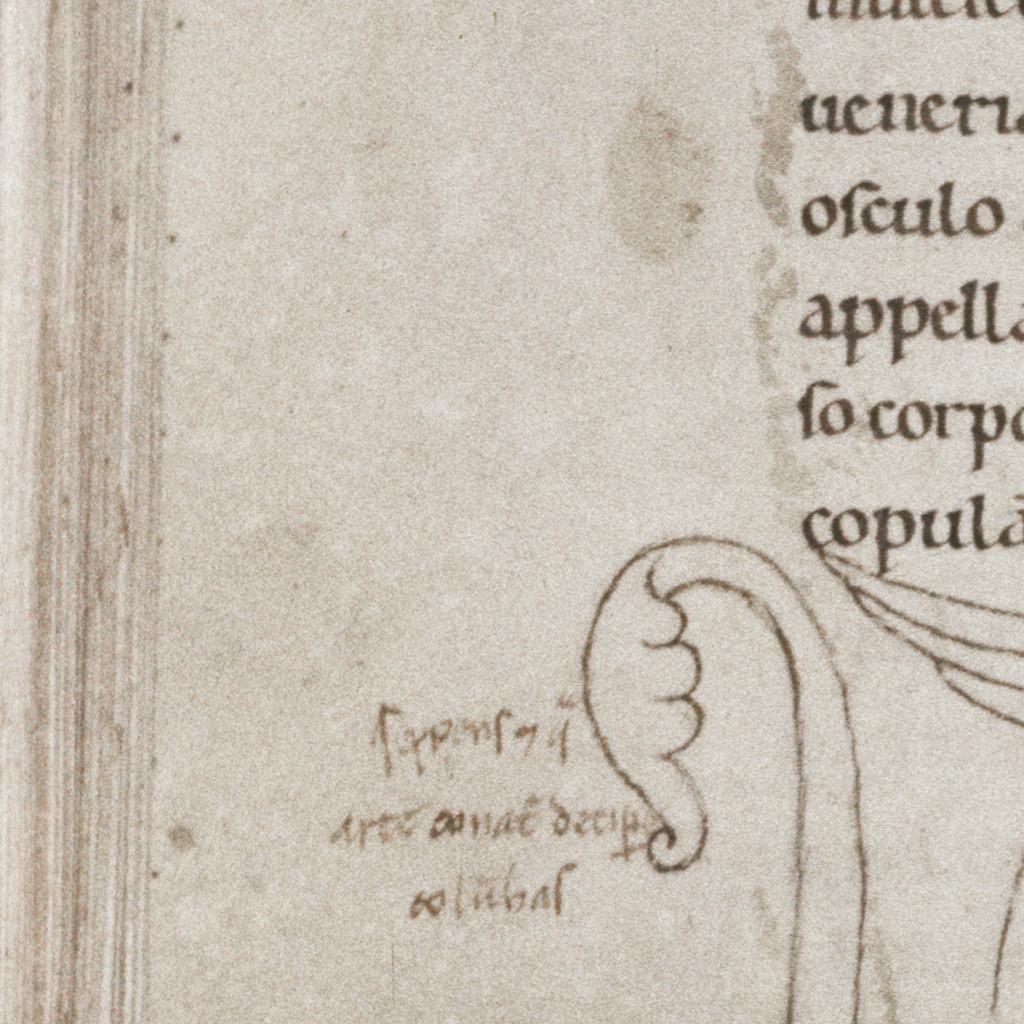 ueneri
oſculo
appella
ſo corpo
copulā
ſerpenſ
arte conat̄ decip
colūbaſ